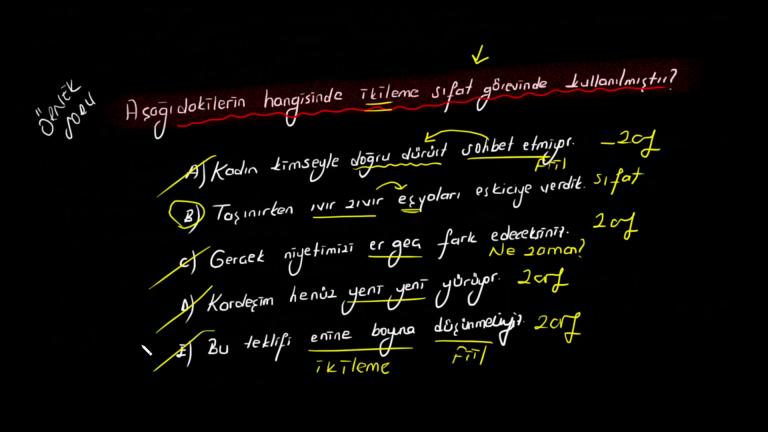 ÖRNEK
SORU
Aşağıdakilerin hangisinde ikileme sıfat görevinde kullanılmıştır?
A) Kadın kimseyle doğru dürüst sohbet etmiyor. → zarf
fiil
B) Taşınırken ıvır zıvır eşyaları eskiciye verdik. sıfat
C) Gerçek niyetimizi er geç fark edeceksiniz. zarf
Ne zaman?
D) Kardeşim henüz yeni yeni yürüyor. zarf
E) Bu teklifi enine boyna düşünmeliyiz. zarf
ikileme fiil